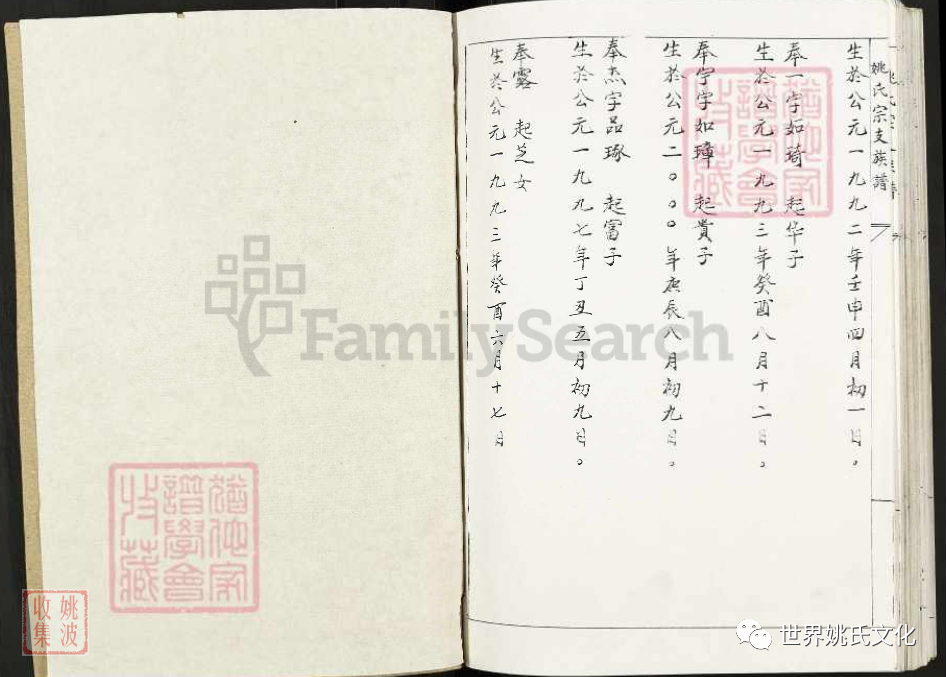 姚氏宗支族譜
生於公元一九九二年壬申四月初一日。
奉一字如琦 起华子
生於公元一九九三年癸酉八月十二日。
奉宁字如璋 起貴子
生於公元二〇〇〇年庚辰八月初九日。
奉杰字品琢 起富子
生於公元一九九七年丁丑五月初九日。
奉露 起芝女
生於公元一九九三年癸酉六月十七日
譜學會
收藏
FamilySearch
譜學會
收藏
姚波
收集
世界姚氏文化